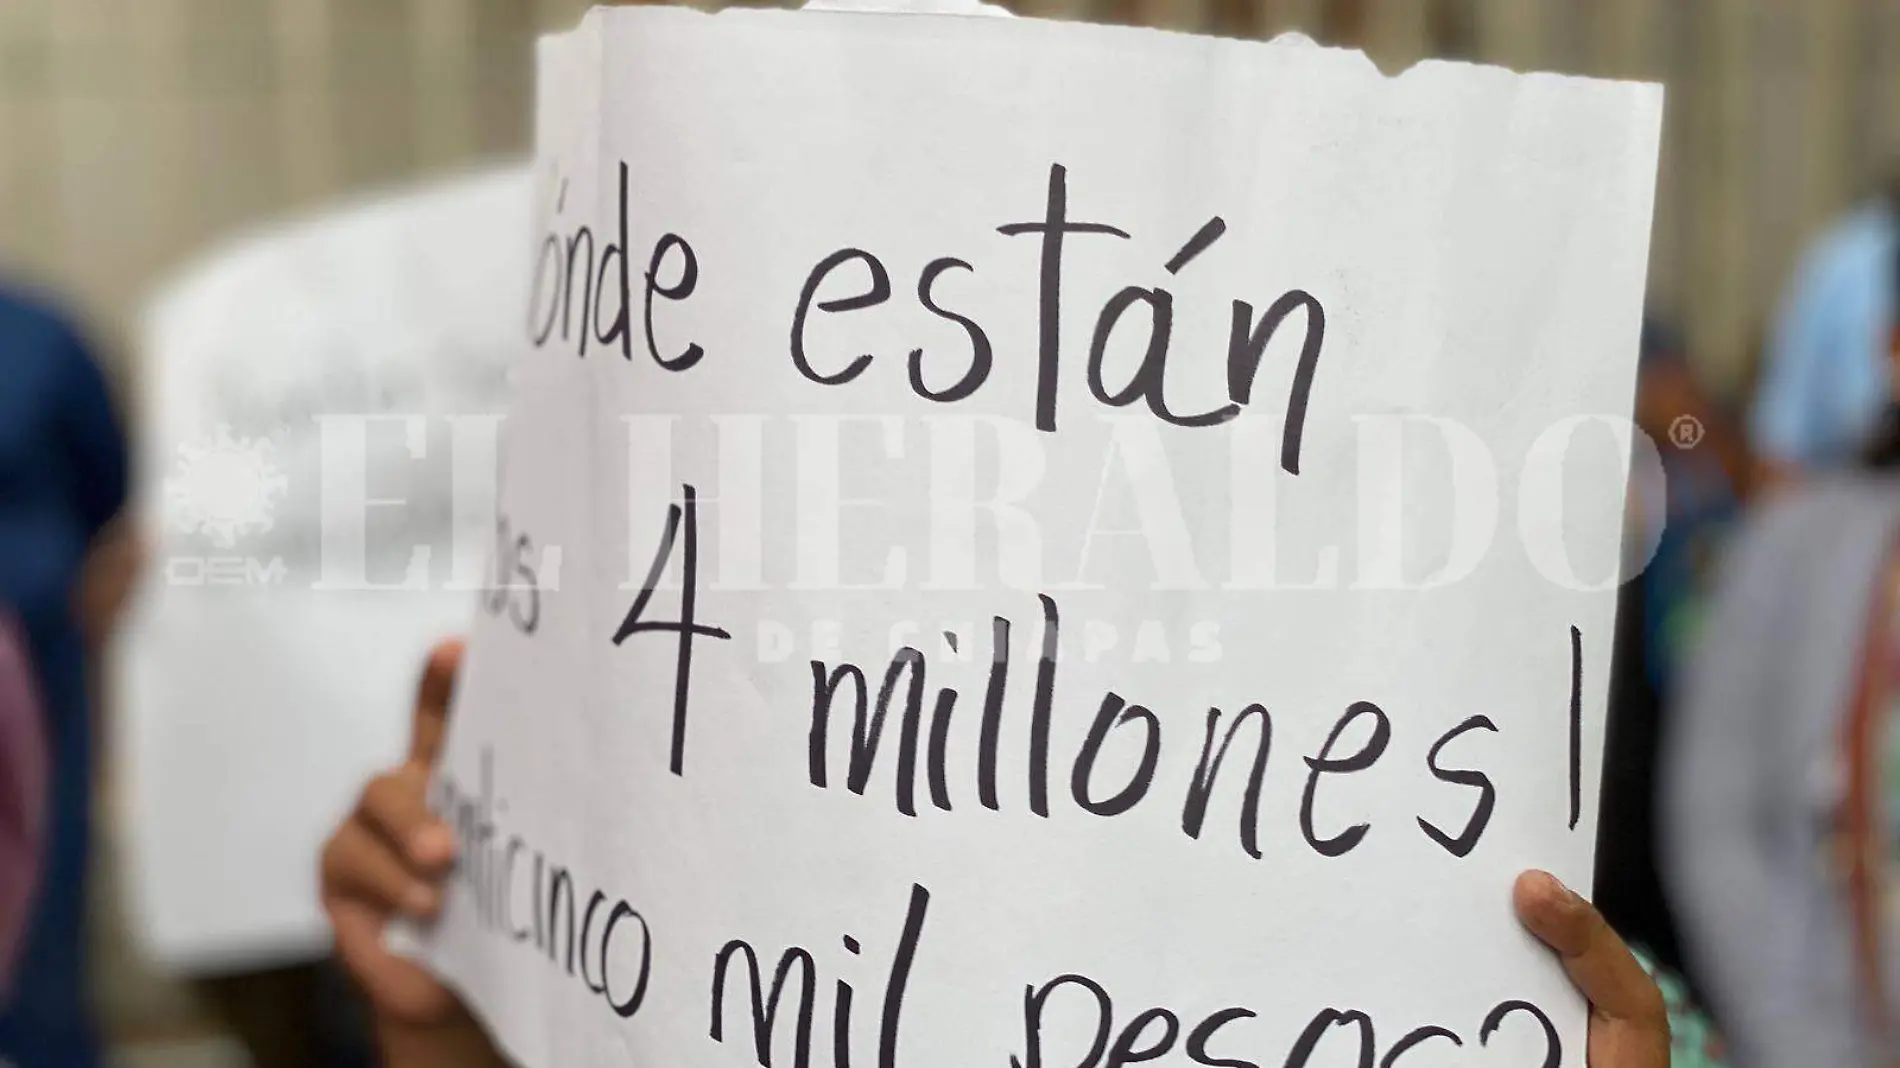 ónde están
os 4 millones!
nticinco mil pesos?
EL HERALDO®
DE CHIAPAS
OEM